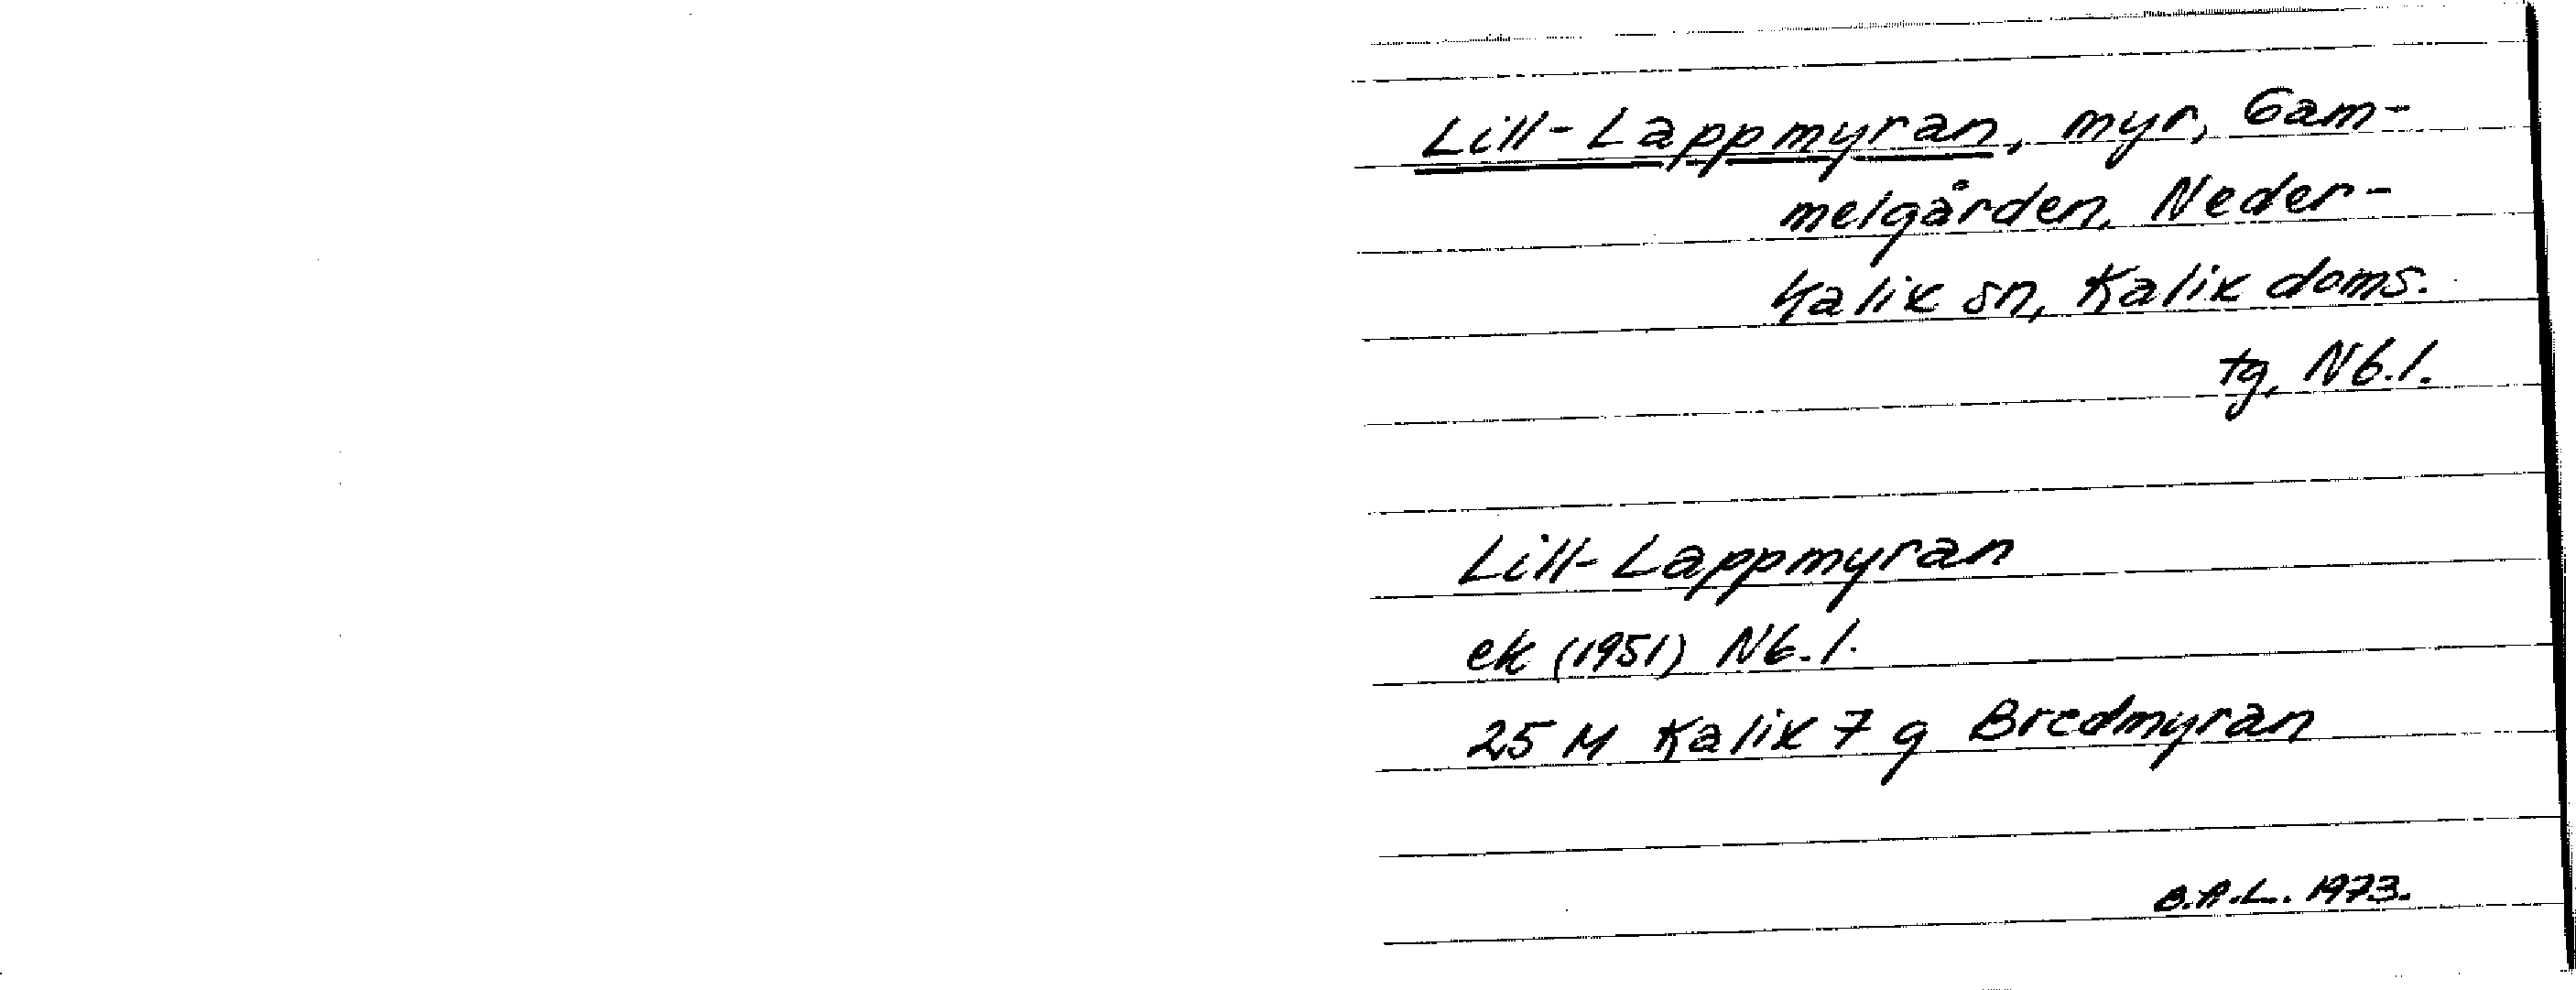 Lill-Lappmyran, myr, Gam-
melgården, Neder-
Kalix sn, Kalix doms.
tg, Nb.l.
Lill-Lappmyran
ek (1951) Nb.l.
25 M Kalix 7 g Bredmyran
B.A.L. 1973.